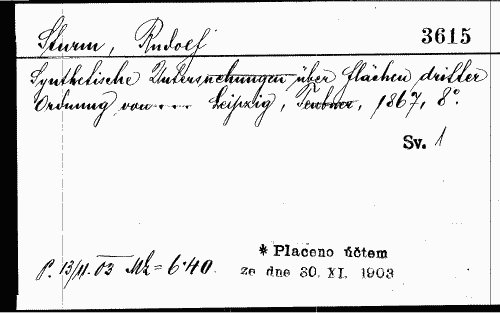 Sturm, Rudolf
3615
Synthetische Untersuchungen über flächen dritter
Ordnung von .... Leipzig, Teubner, 1867, 8°.
Sv. 1
* Placeno účtem
P. 13/11. 03 Mk = 6·40. ze dne 30. XI. 1903